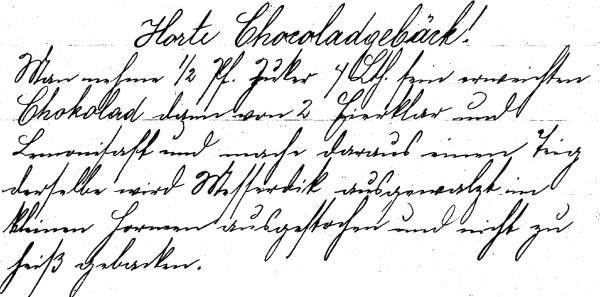 Harte Chocoladgebäck!
Man nehme 1/2 Pf. Zuker 4 Lth. fein erweichten
Chokolad dann von 2 Eierklar und
Lemonisaft und mache daraus einen Teig
derselbe wird Messerdik ausgewalzt in
kleinen Formen ausgestochen und nicht zu
heiß gebacken.